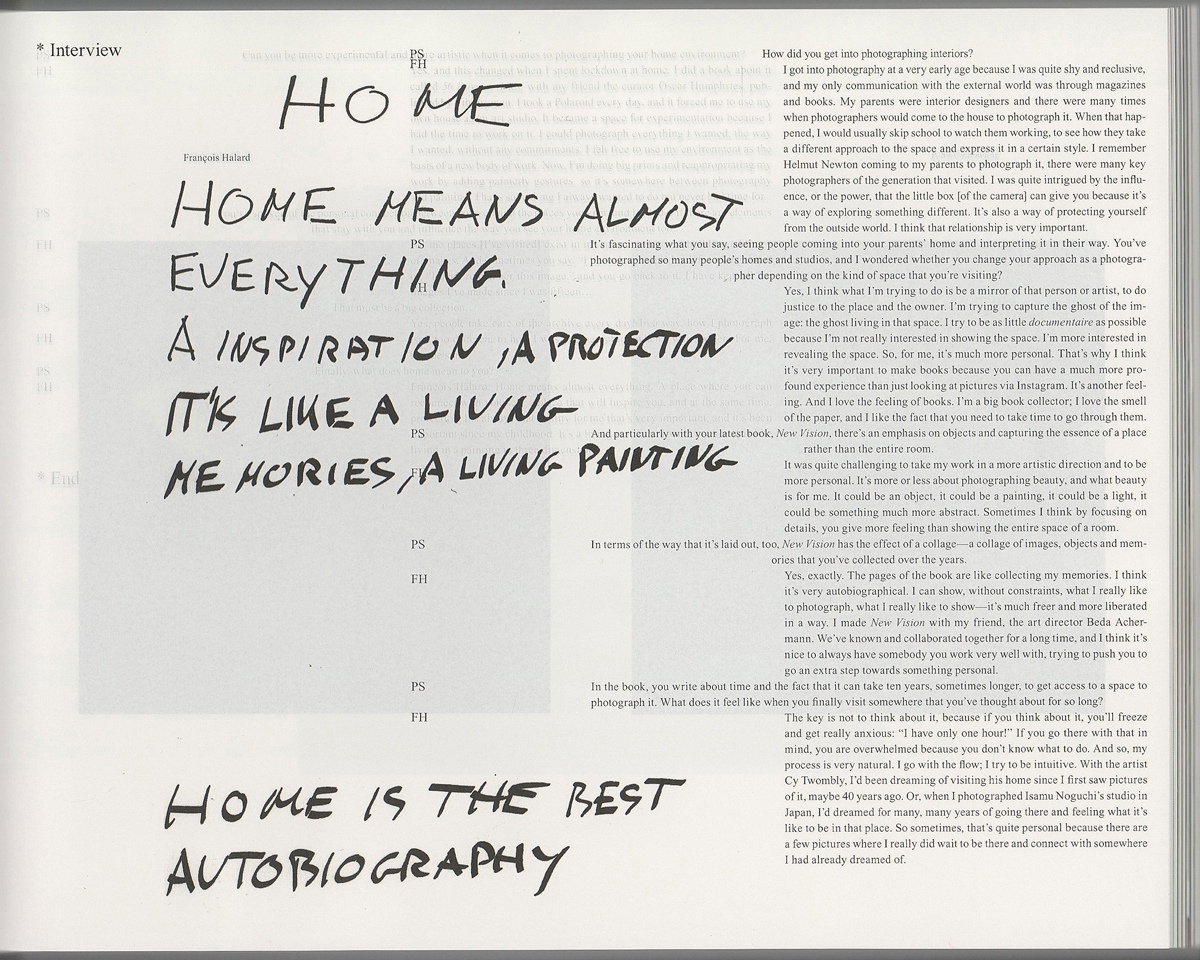 * Interview
HOME
François Halard
HOME MEANS ALMOST
EVERYTHING.
A INSPIRATION, A PROTECTION
IT'S LIKE A LIVING
MEMORIES, A LIVING PAINTING
HOME IS THE BEST
AUTOBIOGRAPHY
PS How did you get into photographing interiors?
FH I got into photography at a very early age because I was quite shy and reclusive,
and my only communication with the external world was through magazines
and books. My parents were interior designers and there were many times
when photographers would come to the house to photograph it. When that hap-
pened, I would usually skip school to watch them working, to see how they take
a different approach to the space and express it in a certain style. I remember
Helmut Newton coming to my parents to photograph it, there were many key
photographers of the generation that visited. I was quite intrigued by the influ-
ence, or the power, that the little box [of the camera] can give you because it's
a way of exploring something different. It's also a way of protecting yourself
from the outside world. I think that relationship is very important.
PS It's fascinating what you say, seeing people coming into your parents' home and interpreting it in their way. You've
photographed so many people's homes and studios, and I wondered whether you change your approach as a photogra-
pher depending on the kind of space that you're visiting?
FH Yes, I think what I'm trying to do is be a mirror of that person or artist, to do
justice to the place and the owner. I'm trying to capture the ghost of the im-
age: the ghost living in that space. I try to be as little documentaire as possible
because I'm not really interested in showing the space. I'm more interested in
revealing the space. So, for me, it's much more personal. That's why I think
it's very important to make books because you can have a much more pro-
found experience than just looking at pictures via Instagram. It's another feel-
ing. And I love the feeling of books. I'm a big book collector; I love the smell
of the paper, and I like the fact that you need to take time to go through them.
PS And particularly with your latest book, New Vision, there's an emphasis on objects and capturing the essence of a place
rather than the entire room.
FH It was quite challenging to take my work in a more artistic direction and to be
more personal. It's more or less about photographing beauty, and what beauty
is for me. It could be an object, it could be a painting, it could be a light, it
could be something much more abstract. Sometimes I think by focusing on
details, you give more feeling than showing the entire space of a room.
PS In terms of the way that it's laid out, too, New Vision has the effect of a collage—a collage of images, objects and mem-
ories that you've collected over the years.
FH Yes, exactly. The pages of the book are like collecting my memories. I think
it's very autobiographical. I can show, without constraints, what I really like
to photograph, what I really like to show—it's much freer and more liberated
in a way. I made New Vision with my friend, the art director Beda Acher-
mann. We've known and collaborated together for a long time, and I think it's
nice to always have somebody you work very well with, trying to push you to
go an extra step towards something personal.
PS In the book, you write about time and the fact that it can take ten years, sometimes longer, to get access to a space to
photograph it. What does it feel like when you finally visit somewhere that you've thought about for so long?
FH The key is not to think about it, because if you think about it, you'll freeze
and get really anxious: “I have only one hour!” If you go there with that in
mind, you are overwhelmed because you don't know what to do. And so, my
process is very natural. I go with the flow; I try to be intuitive. With the artist
Cy Twombly, I'd been dreaming of visiting his home since I first saw pictures
of it, maybe 40 years ago. Or, when I photographed Isamu Noguchi's studio in
Japan, I'd dreamed for many, many years of going there and feeling what it's
like to be in that place. So sometimes, that's quite personal because there are
a few pictures where I really did wait to be there and connect with somewhere
I had already dreamed of.